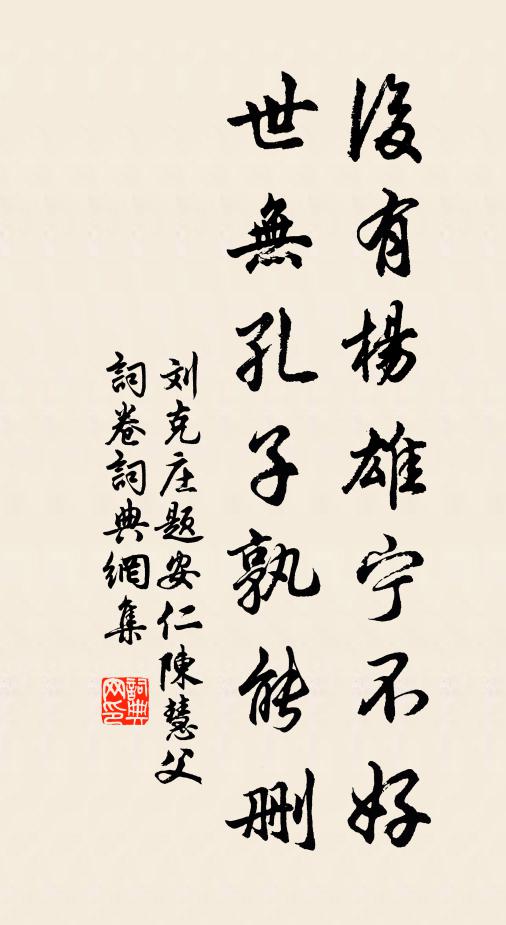 後有楊雄宁不好
世無孔子孰能刪
刘克庄题安仁陳慧父
詞卷詞典網集
詞典網印